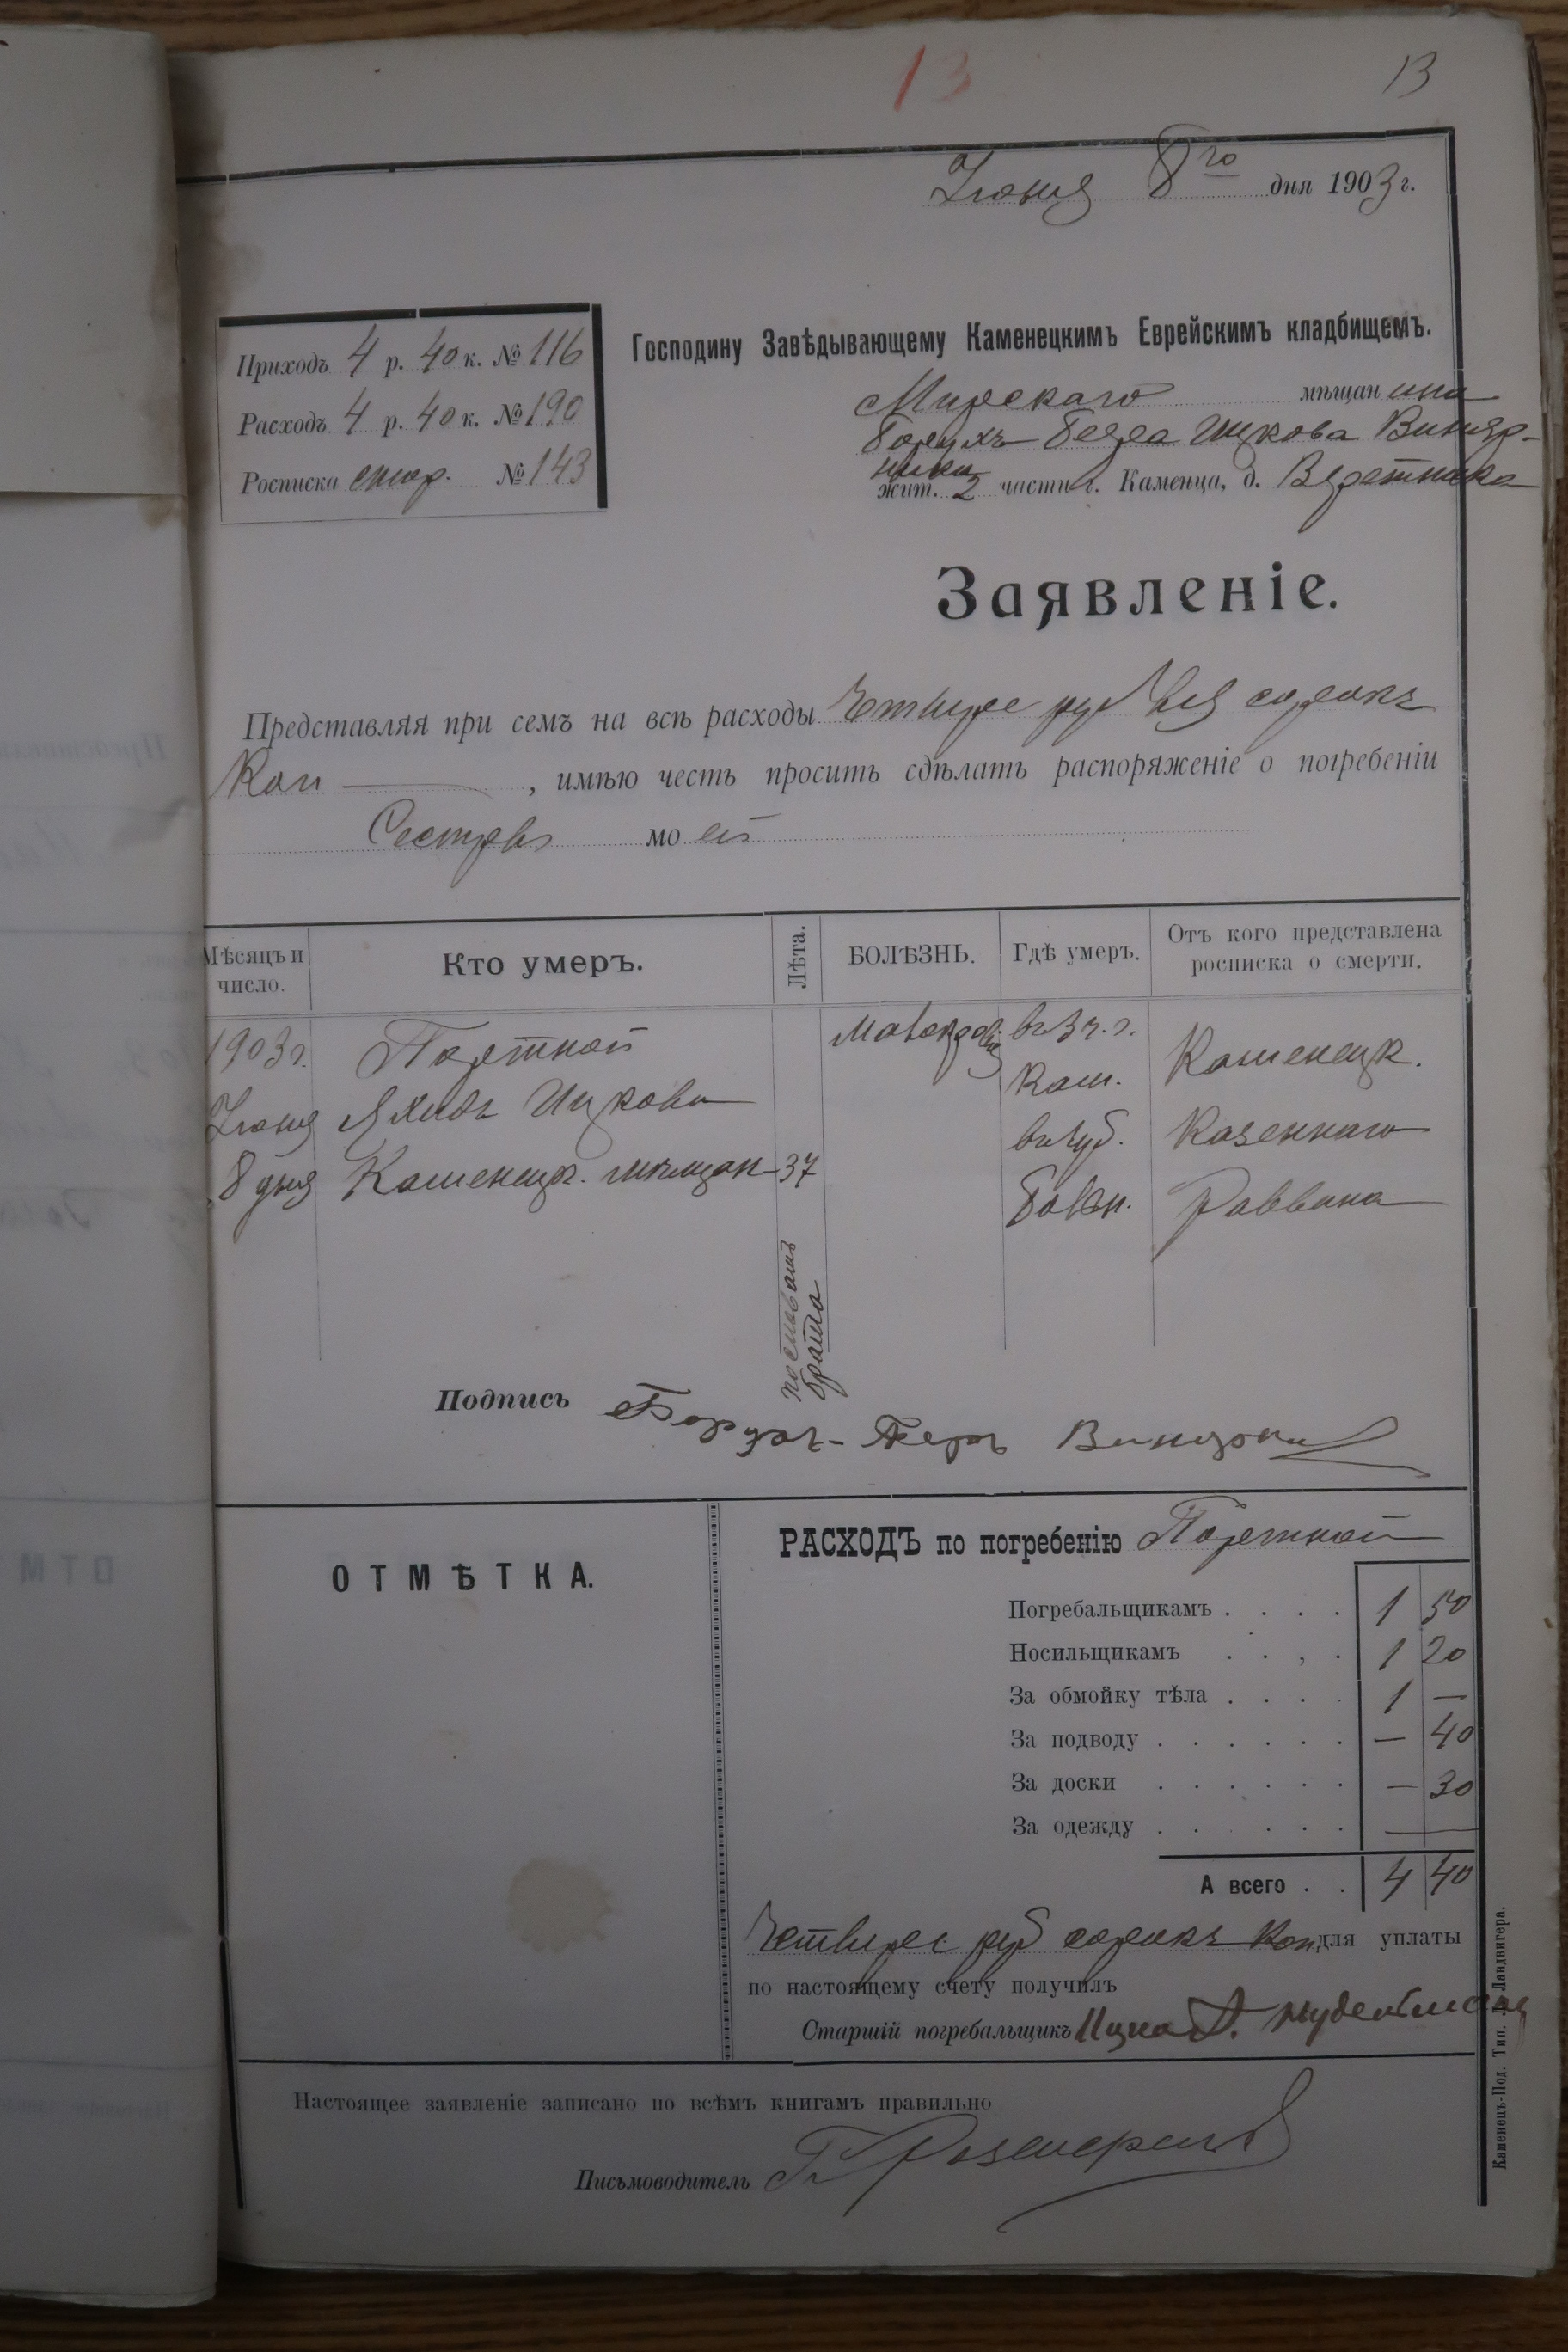 13
13
Іюня 8го дня 1903 г.
Приходъ 4 р. 40 к. № 116
Расходъ 4 р. 40 к. № 190
Росписка стар. № 143
Господину Завѣдывающему Каменецкимъ Еврейскимъ кладбищемъ.
мѣщанина
Борухъ Ицкова
жит. 2 части г. Каменца, д.
Заявленіе.
Представляя при семъ на всѣ расходы Четыре рубля сорокъ
Коп , имѣю честь просить сдѣлать распоряженіе о погребеніи
Сестры моей
Мѣсяцъ и число.
Кто умеръ.
Лѣта.
БОЛѢЗНЬ.
Гдѣ умеръ.
Отъ кого представлена росписка о смерти.
1903 г. Портной въ 3 ч. г. Каменецк.
Іюня Ицкова Кам. Казеннаго
8 дня Каменецк. мѣщан 37 въ губ. Раввина
больн.
по словамъ
брата
Подпись Борухъ-Беръ
ОТМѢТКА.
РАСХОДЪ по погребенію Портной
Погребальщикамъ . . . . 1 50
Носильщикамъ . . , . 1 20
За обмойку тѣла . . . . 1 —
За подводу . . . . . . — 40
За доски . . . . . — 30
За одежду . . . . . . —
А всего . . 4 40
Четыре руб сорокъ Коп для уплаты
по настоящему счету получилъ
Старшій погребальщикъ
Настоящее заявленіе записано по всѣмъ книгамъ правильно
Письмоводитель
Каменецъ-Под. Тип. Ландвигера.